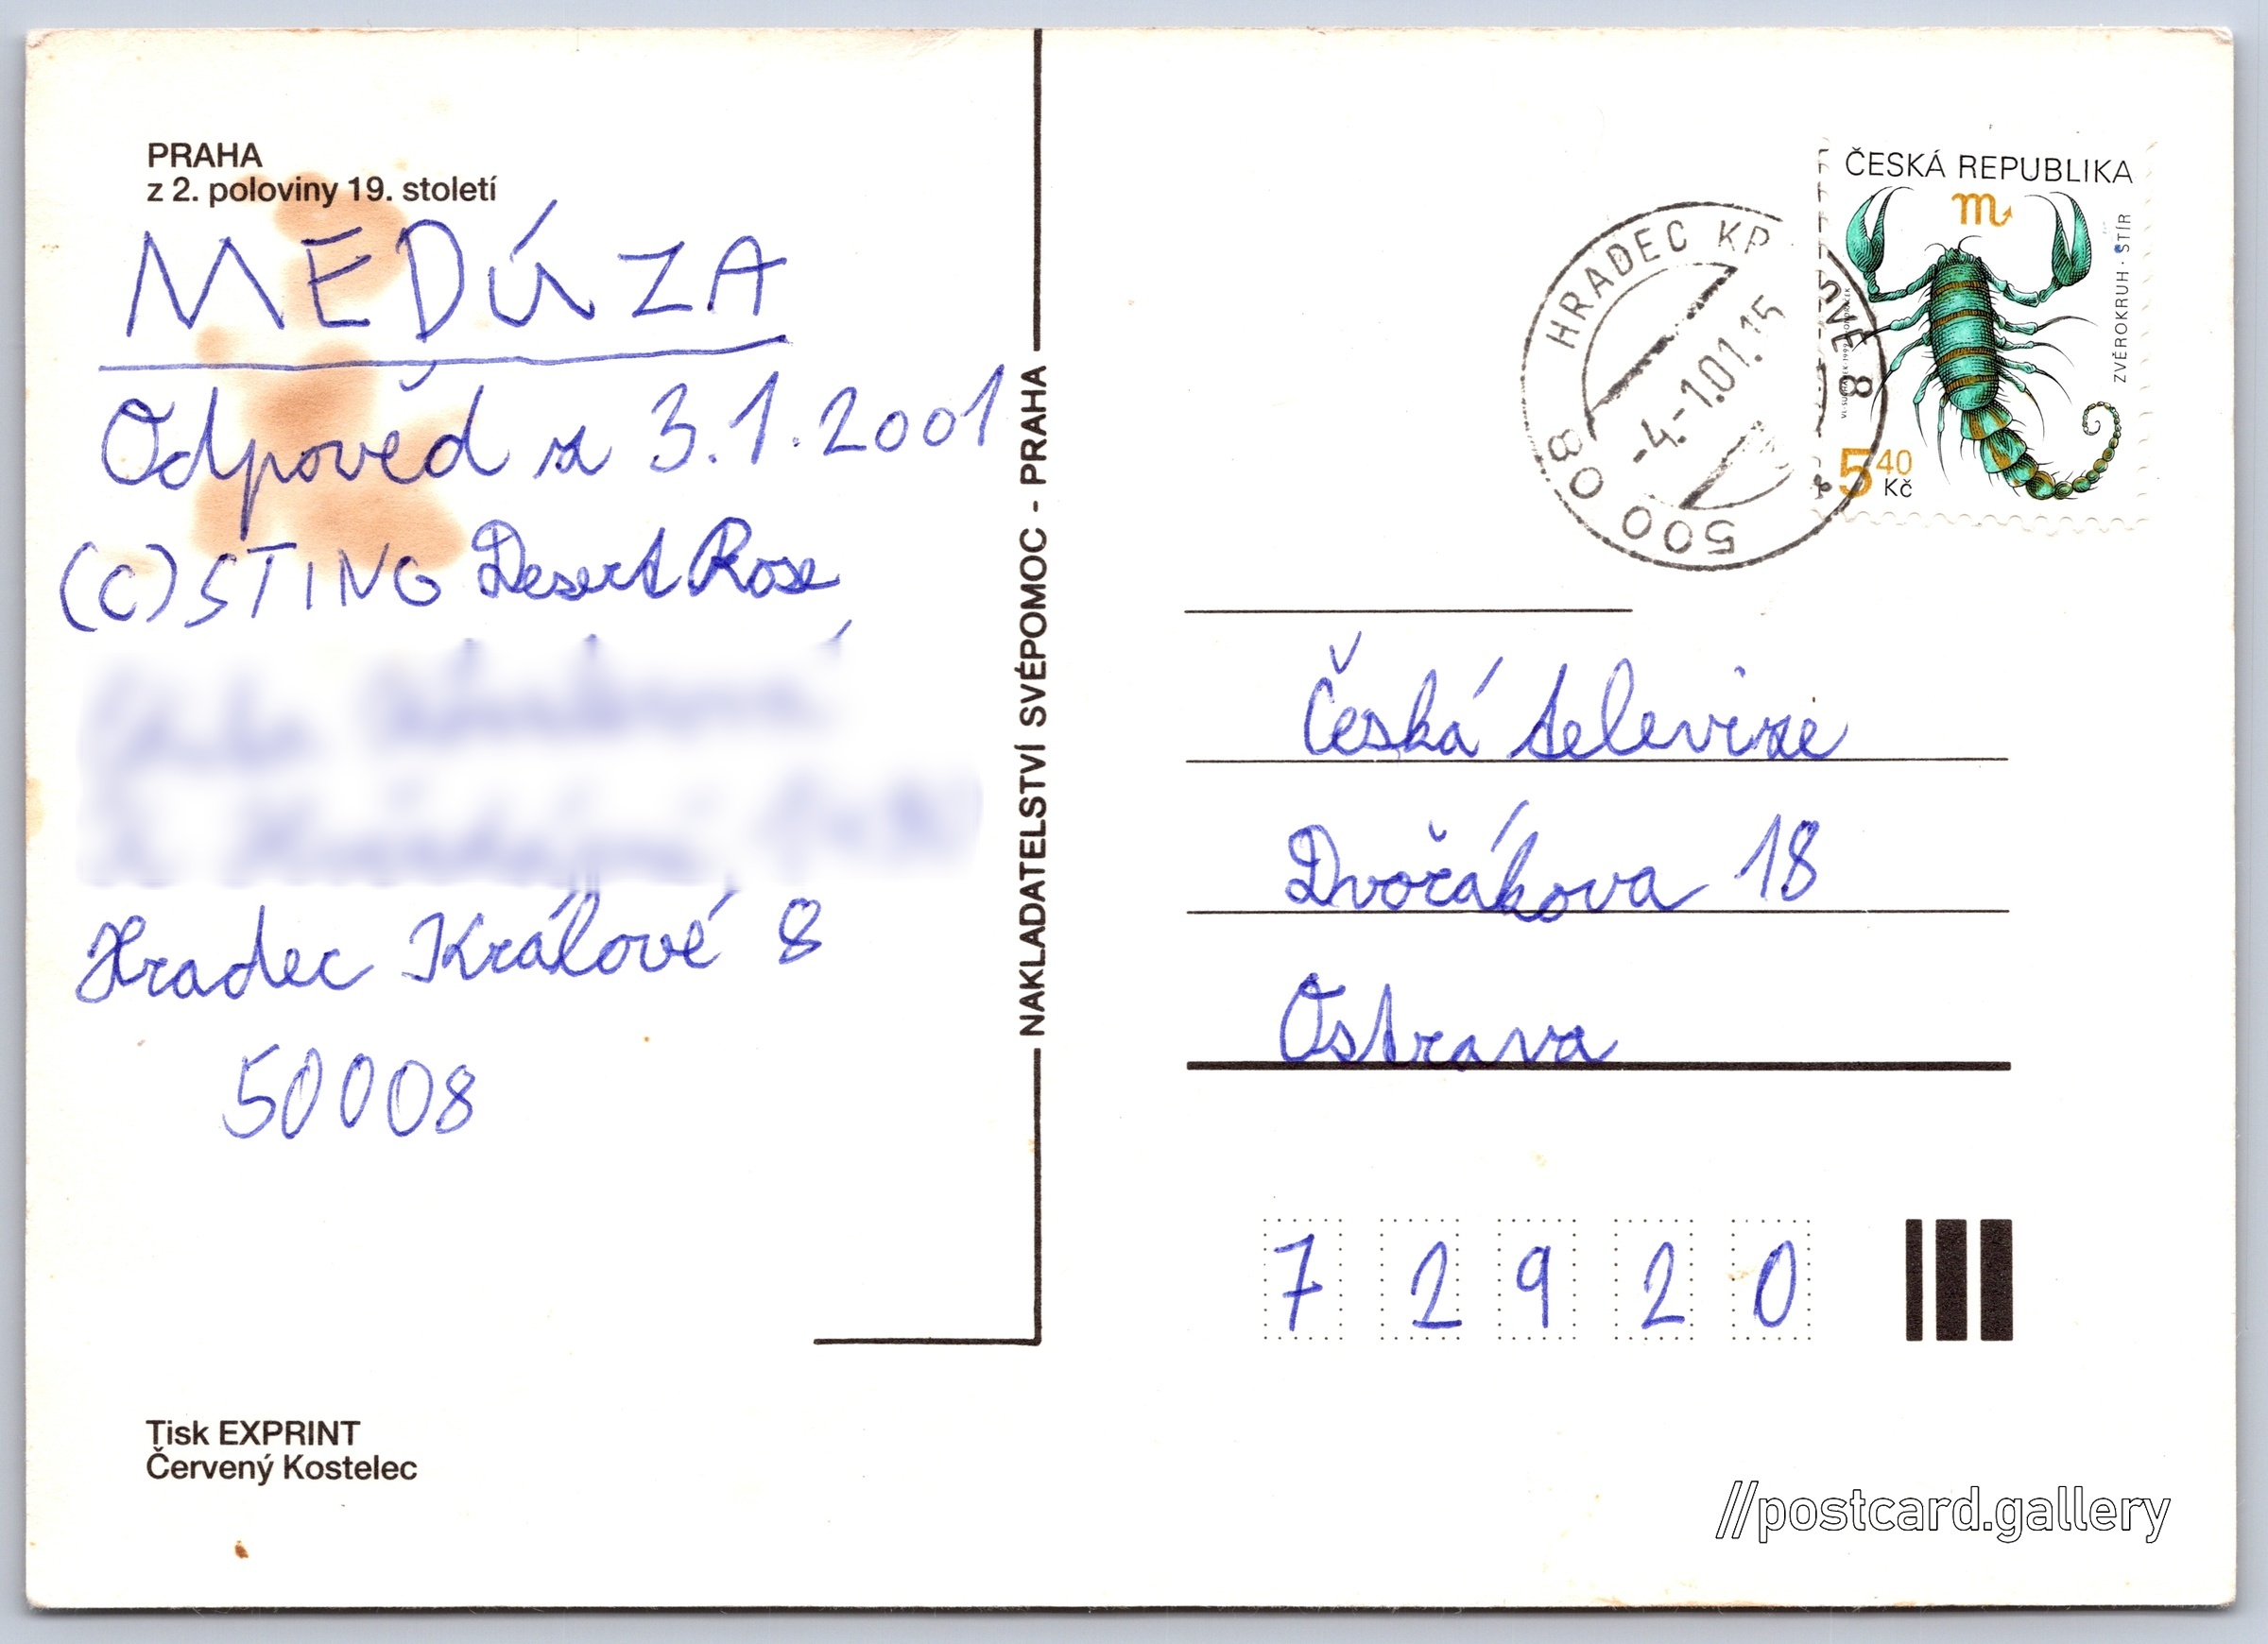 PRAHA
z 2. poloviny 19. století
MEDÚZA
Odpověď z 3.1.2001
(C) STING Desert Rose
Hradec Králové 8
50008
Tisk EXPRINT
Červený Kostelec
NAKLADATELSTVÍ SVÉPOMOC - PRAHA
HRADEC KR OVÉ 8
-4.-1.01.15
500 08
ČESKÁ REPUBLIKA
ZVĚROKRUH · ŠTÍR
5 40
Kč
Česká televize
Dvořákova 18
Ostrava
7 2 9 2 0
//postcard.gallery